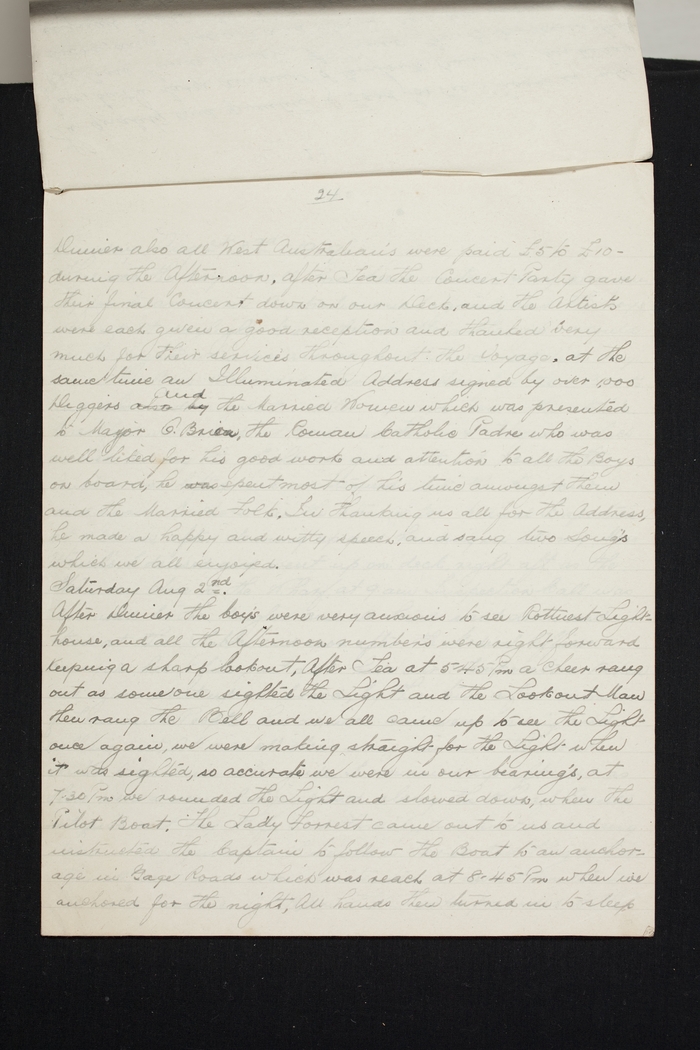 24
Dinner also all West Australian's were paid £5 to £10-
during the Afternoon, after Tea the Concert Party gave
their final Concert down on our Deck, and the Artists
were each given a good reception and thanked very
much for their services throughout the voyage, at the
same time an Illuminated Address signed by over 1,000
Diggers also by and the Married Women which was presented
to Major O.Brien, the Roman Catholic Padre who was
well liked for his good work and attention to all the Boys
on board, he was spent most of his time amongst them
and the Married Folk. In thanking us all for the Address,
he made a happy and witty speech, and sang two Song's
which we all enjoyed.
Saturday Aug 2nd.
After Dinner the boy's were very anxious to see Rottnest Light-
house, and all the Afternoon number's were right forward
keeping a sharp lookout, After Tea at 5.45 Pm a cheer rang
out as someone sighted the Light and the Lookout Man
then rang the Bell and we all came up to see the Light
once again, we were making straight for the Light when
it was sighted, so accurate we were in our bearing's, at
7-30 Pm we rounded the Light and slowed down, when the
Pilot Boat. The Lady Forrest came out to us and
instructed the Captain to follow the Boat to an anchor-
age in Gage Roads which was reach at 8-45 Pm when we
anchored for the night, All hands then turned in to sleep